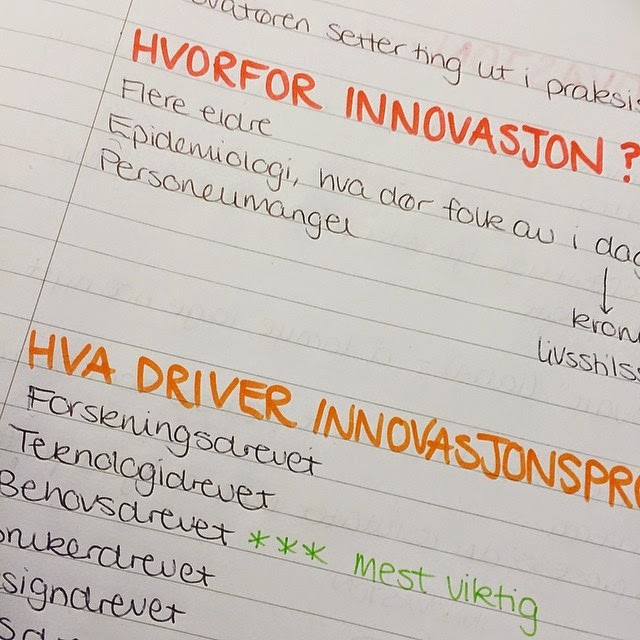 vatøren setter ting ut i praksis
HVORFOR INNOVASJON?
Flere eldre
Epidemiologi, hva dør folk av i dag
Personellmangel
↓
kron
livsstils
HVA DRIVER INNOVASJONSPRO
Forskningsdrevet
Teknologidrevet
Behovsdrevet *** mest viktig
brukerdrevet
signdrevet